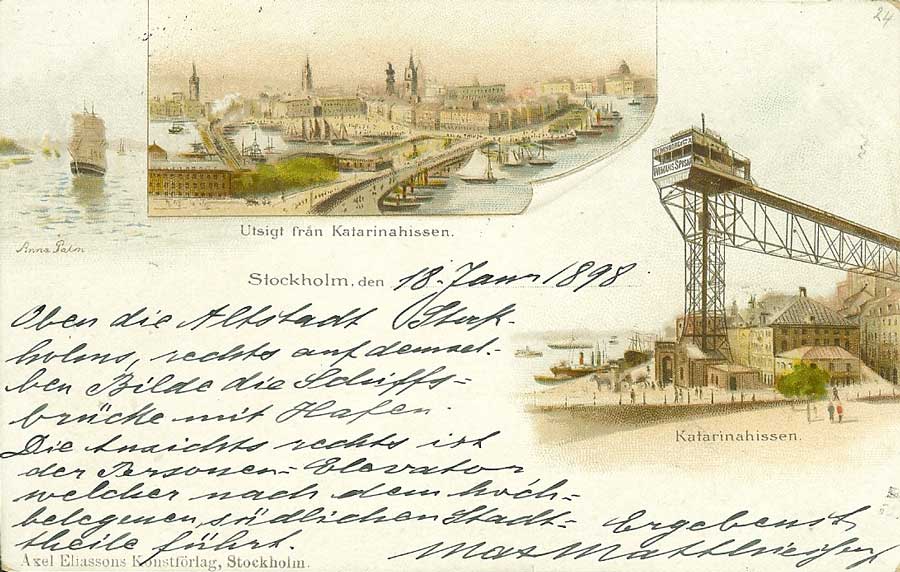 24
Anna Palm
Utsigt från Katarinahissen.
Stockholm, den 18. Janr 1898.
Oben die Altstadt Stock-
holms, rechts auf demsel-
ben Bilde die Schiffs-
brücke mit Hafen.
Die Ansichts rechts ist
der Personen-Elevator
welcher nach dem hoch-
belegenen, südlichen Stadt-
theile führt.
Ergebenst
Max
Katarinahissen.
Axel Eliassons Konstförlag, Stockholm.